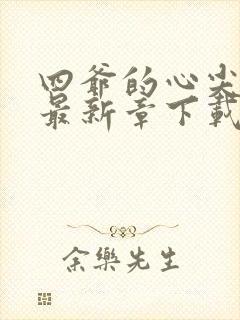 四爷的心尖
最新章下載
余樂先生